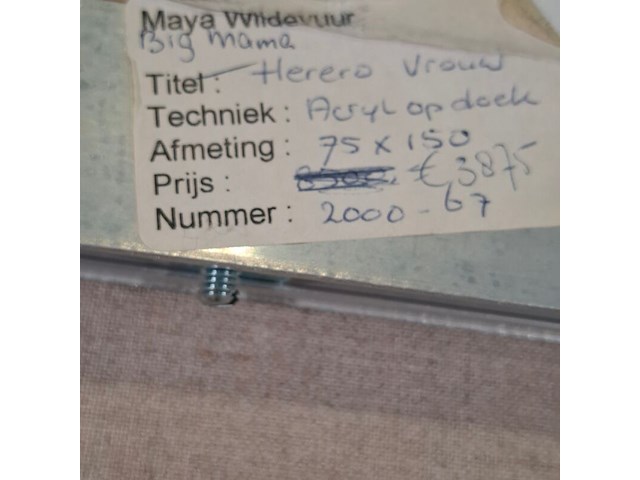 Maya Wildevuur
Big Mama
Titel: Herero Vrouw
Techniek: Acryl op doek
Afmeting: 75 x 150
Prijs: € 3875
Nummer: 2000-67